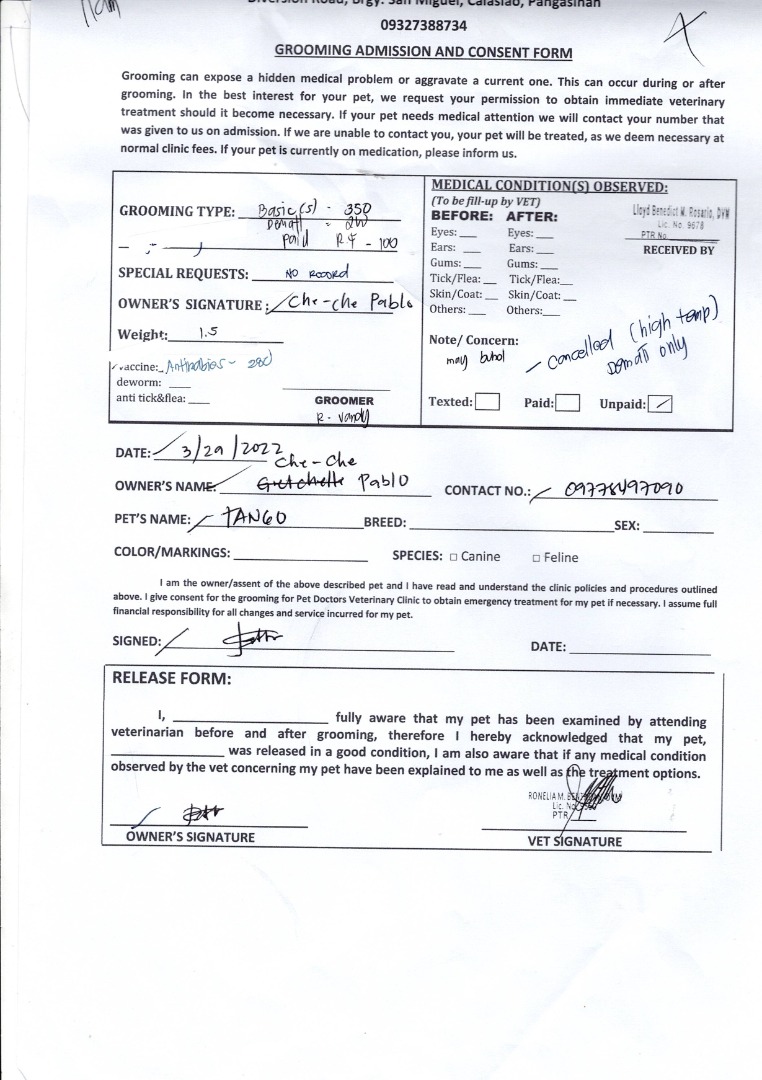 11am
Diversion Road, Brgy. San Miguel, Calasiao, Pangasinan
09327388734
GROOMING ADMISSION AND CONSENT FORM
Grooming can expose a hidden medical problem or aggravate a current one. This can occur during or after
grooming. In the best interest for your pet, we request your permission to obtain immediate veterinary
treatment should it become necessary. If your pet needs medical attention we will contact your number that
was given to us on admission. If we are unable to contact you, your pet will be treated, as we deem necessary at
normal clinic fees. If your pet is currently on medication, please inform us.
GROOMING TYPE: Basic (s) - 350
Dematt -
paid R# - 100
SPECIAL REQUESTS: No Record
OWNER'S SIGNATURE: Che-che Pablo
Weight: 1.5
vaccine: Antirabies - 280
deworm: ___
anti tick&flea: ___
GROOMER
R. vandy
MEDICAL CONDITION(S) OBSERVED:
(To be fill-up by VET)
BEFORE: AFTER:
Eyes: ___ Eyes: ___
Ears: ___ Ears: ___
Gums: ___ Gums: ___
Tick/Flea: ___ Tick/Flea:___
Skin/Coat: ___ Skin/Coat: ___
Others: ___ Others:___
Lloyd Benedict M. Rosario, DVM
Lic. No. 9678
PTR No.
RECEIVED BY
Note/ Concern:
may buhol
- Cancelled (high temp)
Dematt only
Texted: Paid: Unpaid: ✓
DATE: 3/29/2022
Che-Che
OWNER'S NAME: Gretchelle Pablo CONTACT NO.: 09778497090
PET'S NAME: TANGO BREED: SEX:
COLOR/MARKINGS: SPECIES: □ Canine □ Feline
I am the owner/assent of the above described pet and I have read and understand the clinic policies and procedures outlined
above. I give consent for the grooming for Pet Doctors Veterinary Clinic to obtain emergency treatment for my pet if necessary. I assume full
financial responsibility for all changes and service incurred for my pet.
SIGNED: DATE:
RELEASE FORM:
I, ____________ fully aware that my pet has been examined by attending
veterinarian before and after grooming, therefore I hereby acknowledged that my pet,
____________ was released in a good condition, I am also aware that if any medical condition
observed by the vet concerning my pet have been explained to me as well as the treatment options.
RONELIA M.
Lic. No.
PTR
OWNER'S SIGNATURE
VET SIGNATURE